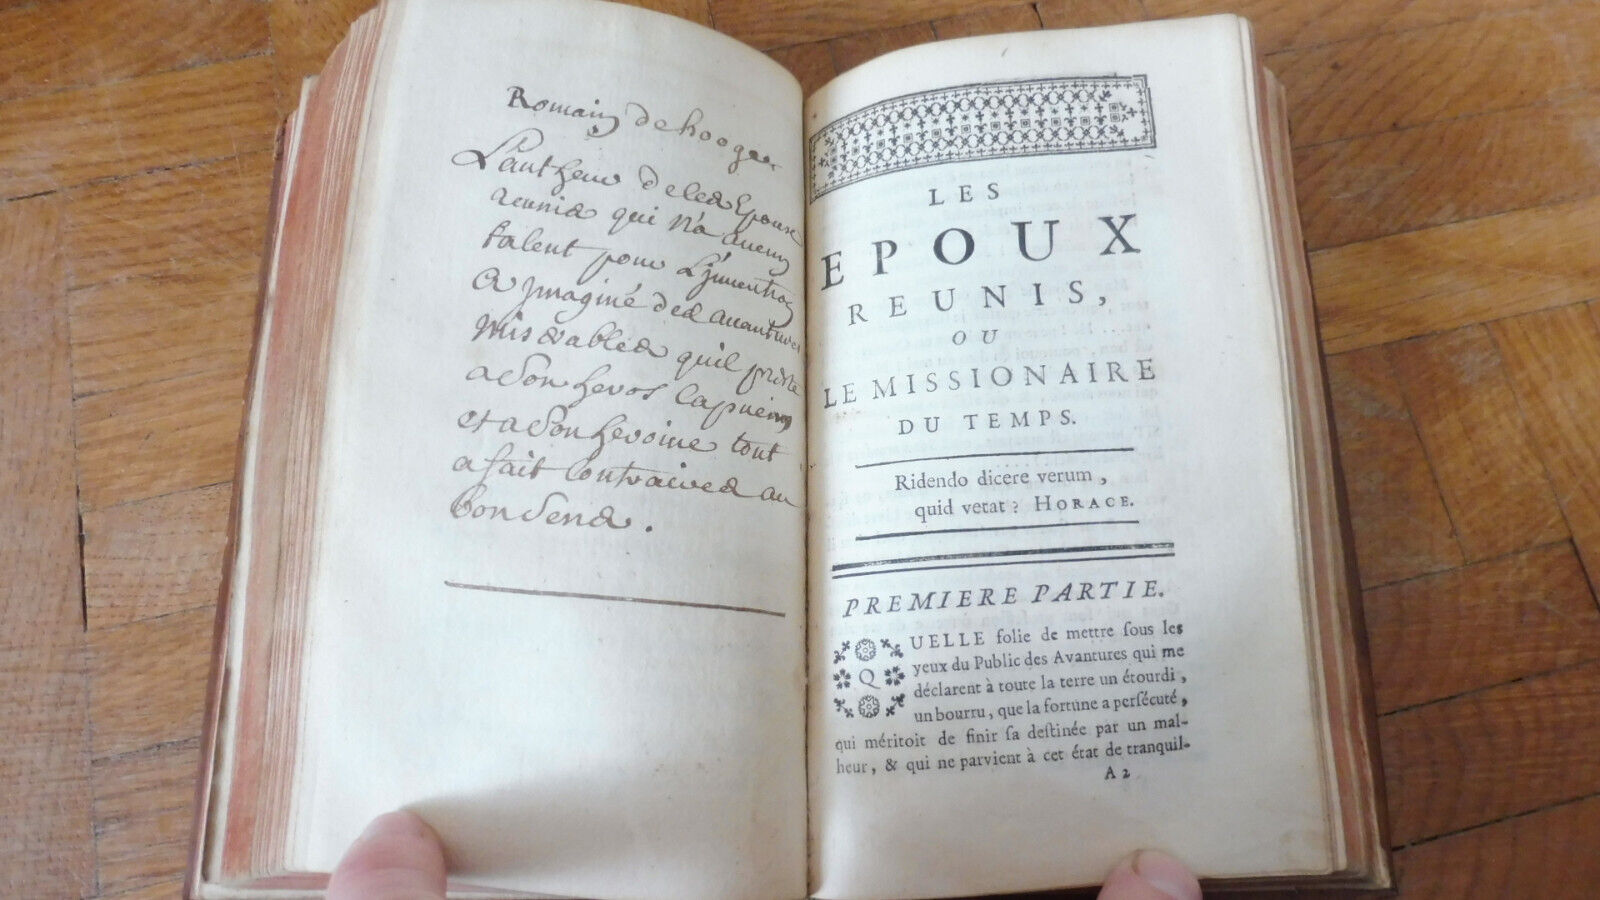 Romain de hooger
L'autheur de les Epoux
reunis qui n'a aucun
talent pour L'jmention
a jmaginé des avantures
miserables quil preste
a son heros Capucin
et a son heroine tout
a fait contraires au
bon sens.
LES
EPOUX
REUNIS,
OU
LE MISSIONAIRE
DU TEMPS.
Ridendo dicere verum,
quid vetat? HORACE.
PREMIERE PARTIE.
QUELLE folie de mettre ſous les
yeux du Public des Avantures qui me
déclarent à toute la terre un étourdi,
un bourru, que la fortune a perſécuté,
qui méritoit de finir ſa deſtinée par un mal-
heur, & qui ne parvient à cet état de tranquil-
A 2